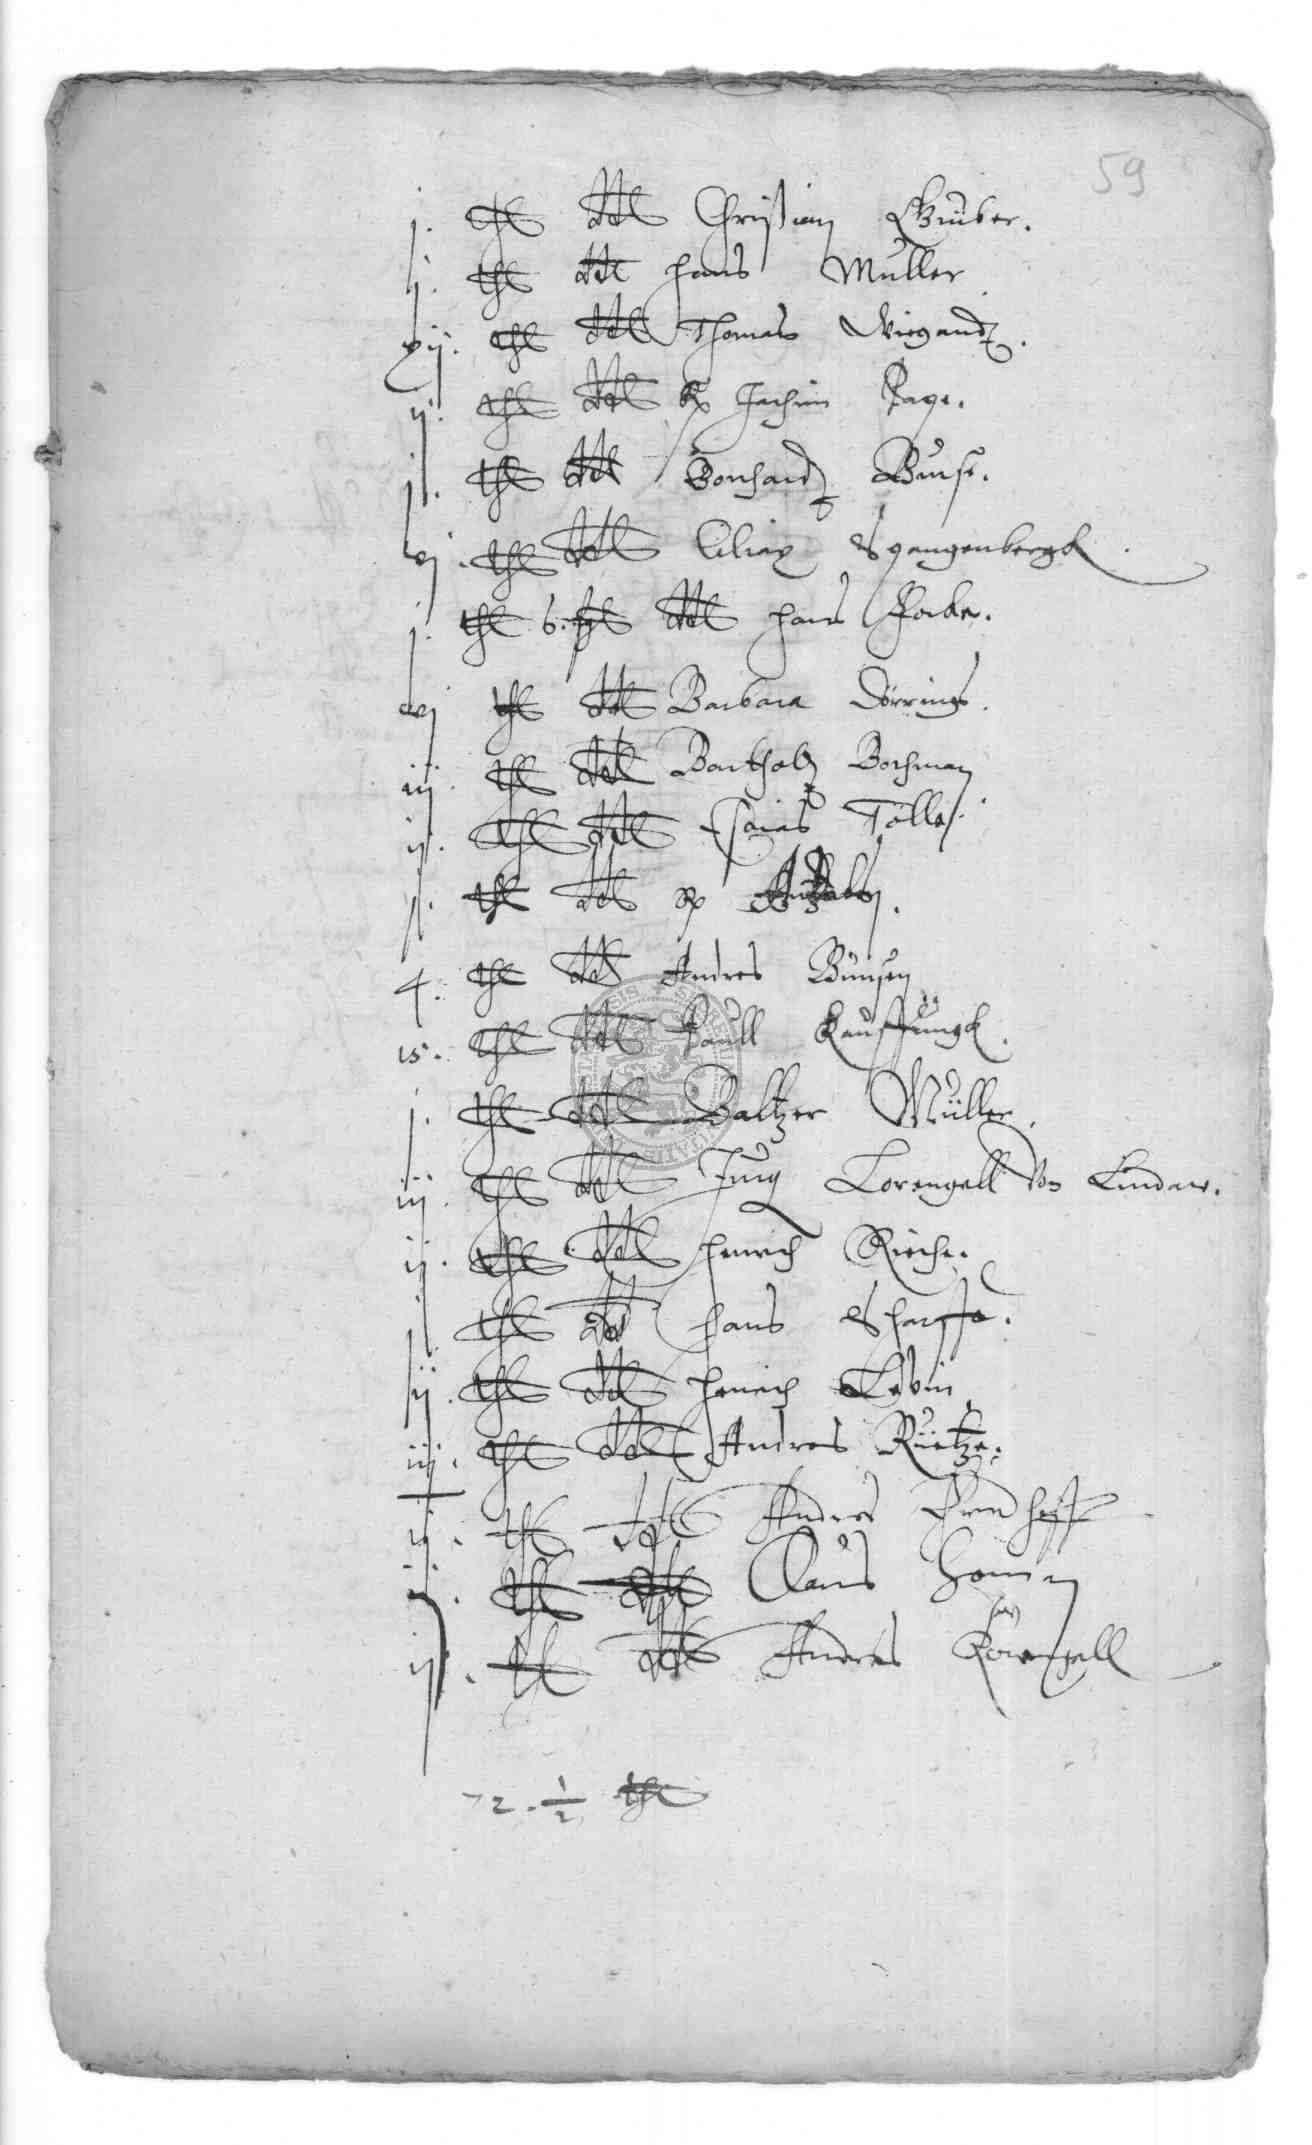 59
j. thl ddt Christian Gruber.
j. thl ddt Hans Müller
xij. thl ddt Thomas Wiegandt.
ij. thl ddt Jochim
j. thl ddt Bonhardt Bunse.
vj. thl ddt Ciliax Spangenbergk
j. thl 6. gl ddt Hans Forke.
vj thl ddt Barbara Dörrings.
iij. thl ddt Barthold Bochman
ij. thl ddt Esaias Tölle.
j. thl ddt
4. thl ddt Andres Bunsen
15. thl ddt Paull Kauffungk.
j. thl ddt Baltzer Müller.
iij. thl ddt Jurg Lorengell von Lindaw.
ij. thl ddt Henrich Kirche.
j thl ddt Hans Scharffe.
ij. thl ddt Henrich Levin
iij. thl ddt Andres Rüetze.
ij. thl ddt Andres
thl ddt Claus Homan
ij. thl ddt Andres Lorengell
72. 1/2 thl